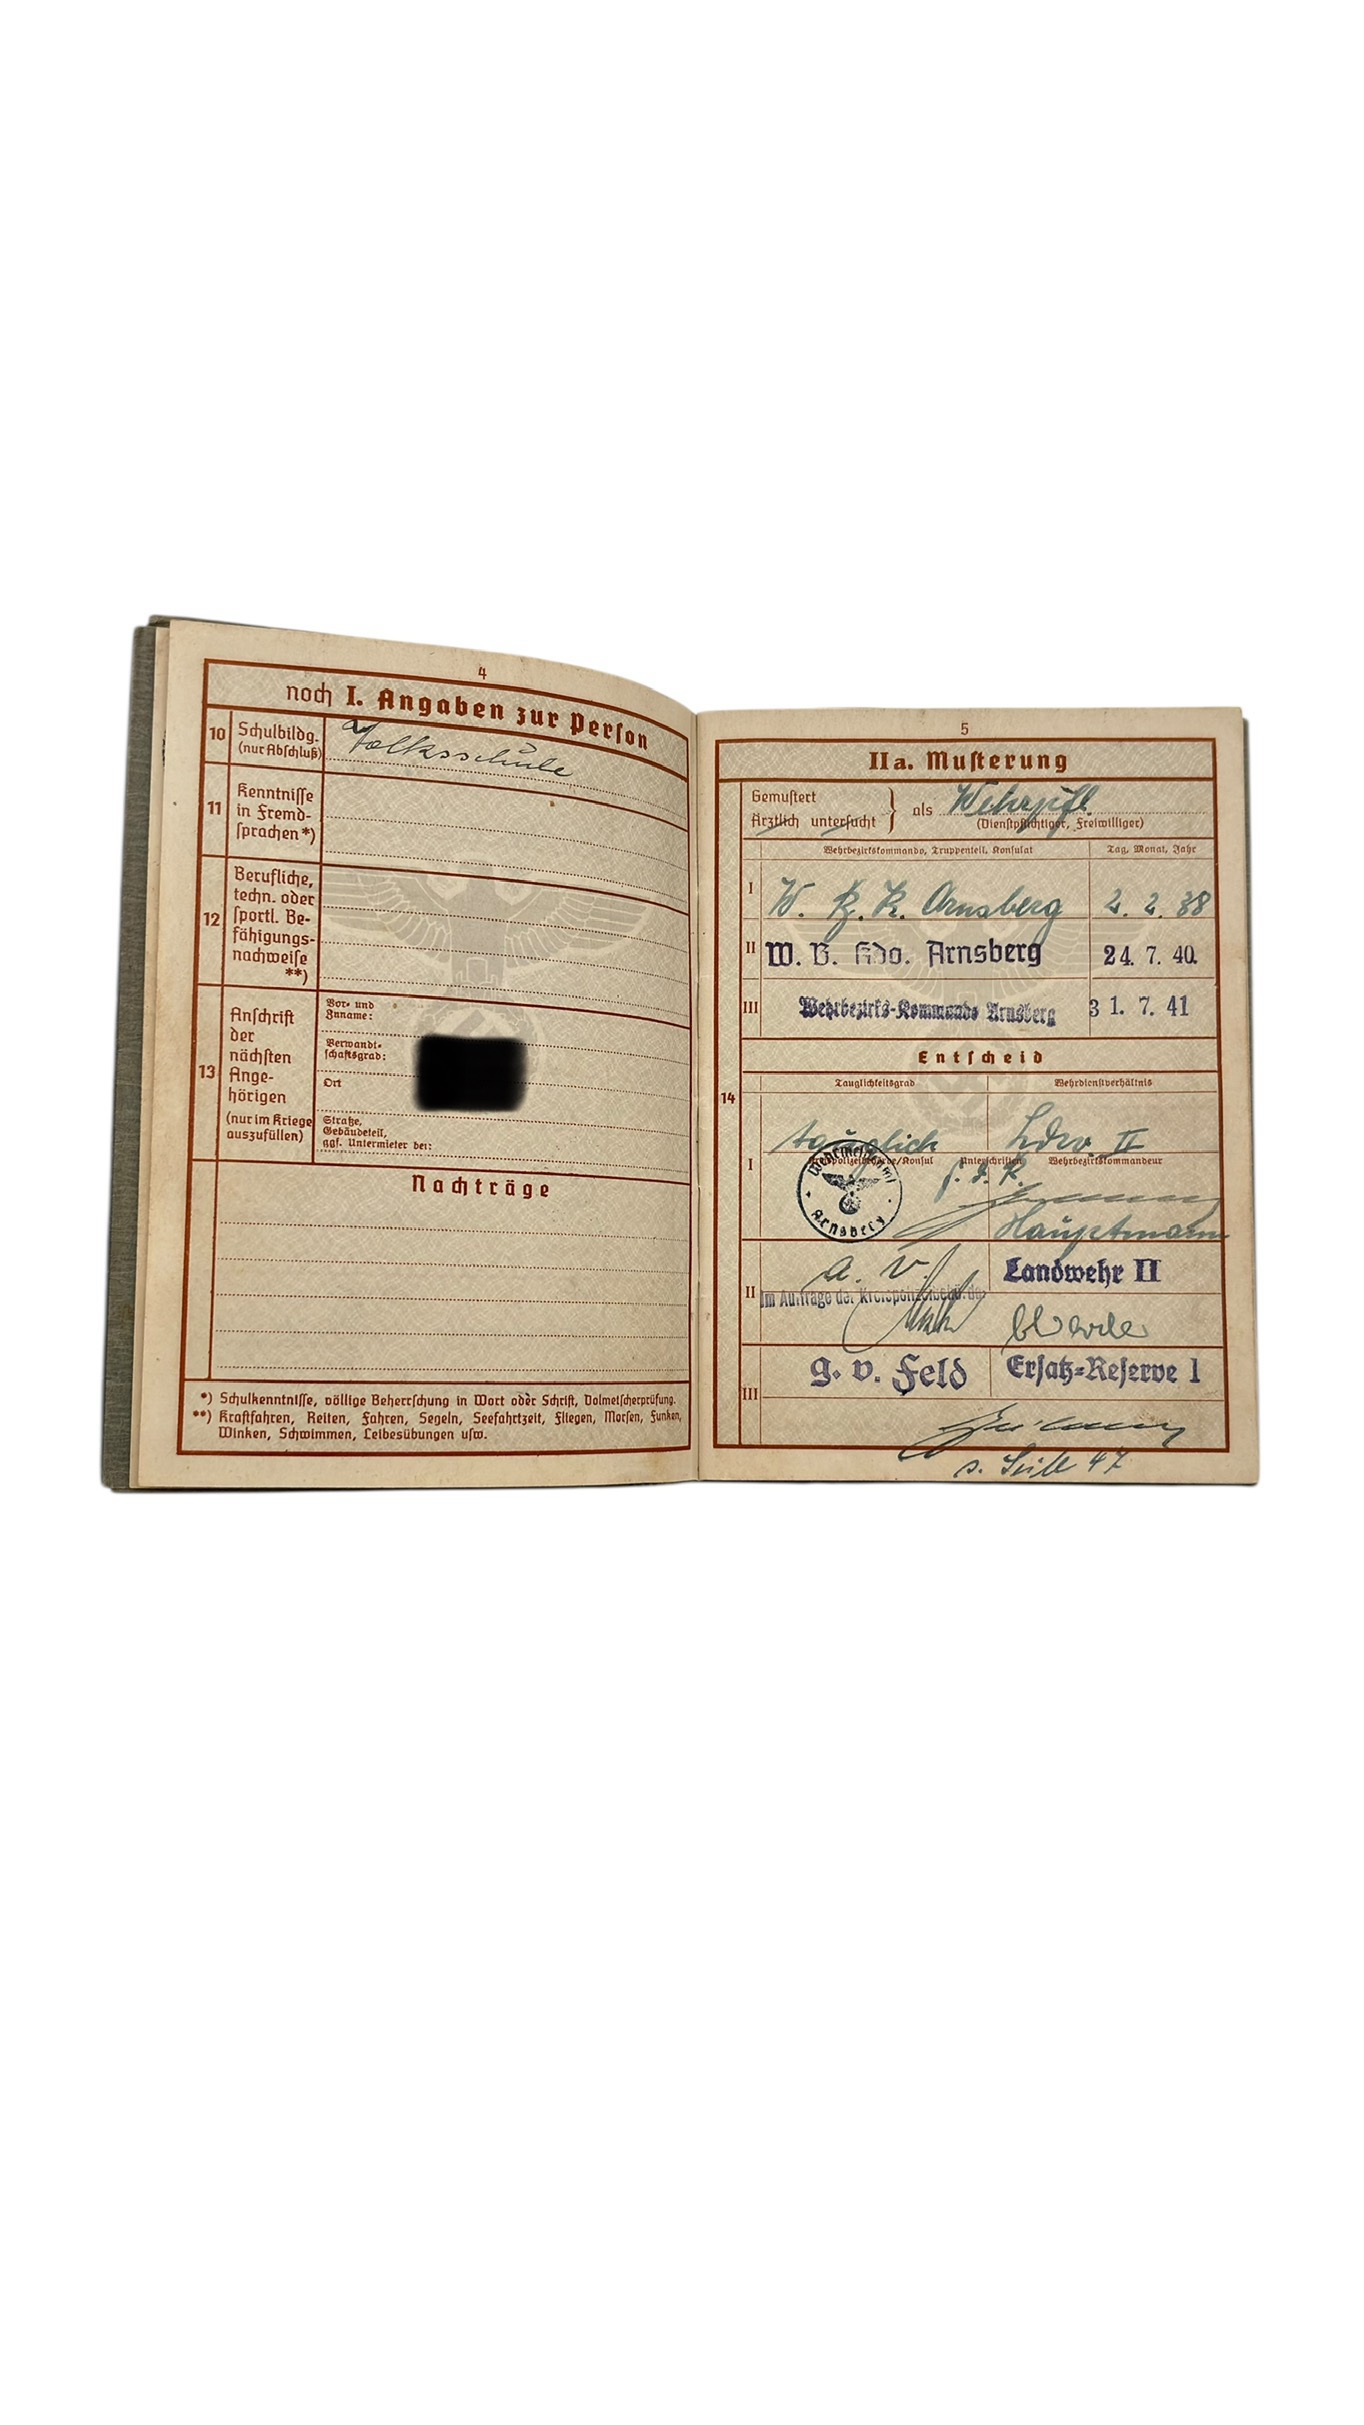 4
noch I. Angaben zur Person
10 Schulbildg. (nur Abschluß)
Volksschule
11 Kenntnisse in Fremd-
sprachen *)
12 Berufliche,
techn. oder
sportl. Be-
fähigungs-
nachweise
**)
13 Anschrift
der
nächsten
Ange-
hörigen
(nur im Kriege
auszufüllen)
Vor- und
Zuname:
Verwandt-
schaftsgrad:
Ort
Straße,
Gebäudeteil,
ggf. Untermieter bei:
Nachträge
*) Schulkenntnisse, völlige Beherrschung in Wort oder Schrift, Dolmetscherprüfung.
**) Kraftfahren, Reiten, Fahren, Segeln, Seefahrtzeit, Fliegen, Morsen, Funken,
Winken, Schwimmen, Leibesübungen usw.
5
IIa. Musterung
Gemustert
Ärztlich untersucht } als Wehrpfl.
(Dienstpflichtiger, Freiwilliger)
Wehrbezirkskommando, Truppenteil, Konsulat
Tag, Monat, Jahr
I W. B. K. Arnsberg 2. 2. 38
II W. B. Kdo. Arnsberg 24. 7. 40.
III Wehrbezirks-Kommando Arnsberg 31. 7. 41
Entscheid
14
Tauglichkeitsgrad Wehrdienstverhältnis
I tauglich Ldw. II
Kreispolizeibehörde/Konsul Unterschriften Wehrbezirkskommandeur
Wehrmeldeamt
Arnsberg
Hauptmann
II a. v. Landwehr II
Im Auftrage der Kreispolizeibehörde
III g. v. Feld Ersatz-Reserve 1
s. Seite 47